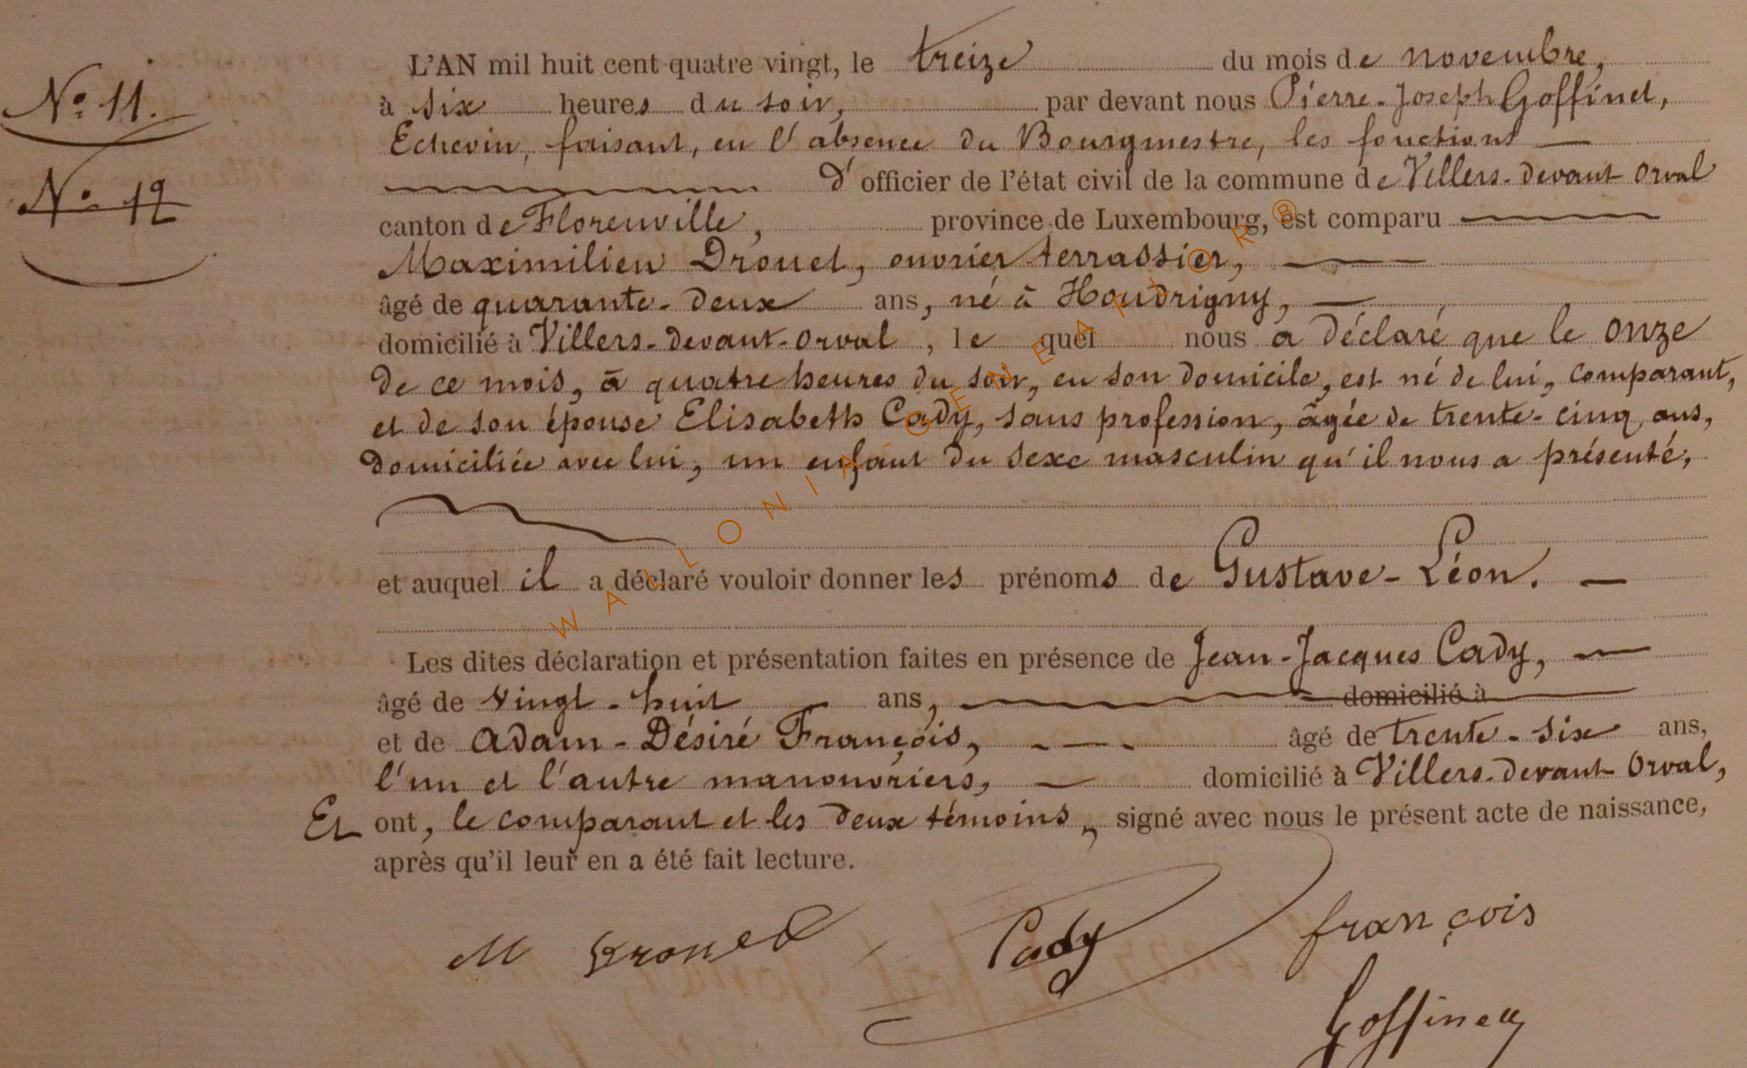 N° 11.
N° 12
L'AN mil huit cent quatre vingt, le treize du mois de novembre,
à six heures du soir, par devant nous Pierre-Joseph Goffinet,
Echevin, faisant, en l'absence du Bourgmestre, les fonctions
d'officier de l'état civil de la commune de Villers-devant-Orval
canton de Florenville, province de Luxembourg, est comparu
Maximilien Drouet, ouvrier terrassier,
âgé de quarante-deux ans, né à Houdrigny,
domicilié à Villers-devant-Orval, lequel nous a déclaré que le onze
de ce mois, à quatre heures du soir, en son domicile, est né de lui, comparant,
et de son épouse Elisabeth Cady, sans profession, âgée de trente-cinq ans,
domiciliée avec lui, un enfant du sexe masculin qu'il nous a présenté,
et auquel il a déclaré vouloir donner les prénoms de Gustave-Léon.
Les dites déclaration et présentation faites en présence de Jean-Jacques Cady,
âgé de vingt-huit ans, domicilié à
et de Adam-Désiré François, âgé de trente-six ans,
l'un et l'autre manouvriers, domicilié à Villers-devant-Orval,
Et ont, le comparant et les deux témoins, signé avec nous le présent acte de naissance,
après qu'il leur en a été fait lecture.
M Drouet Cady françois
Goffinet
WALLONIA-GENEAFLOR®